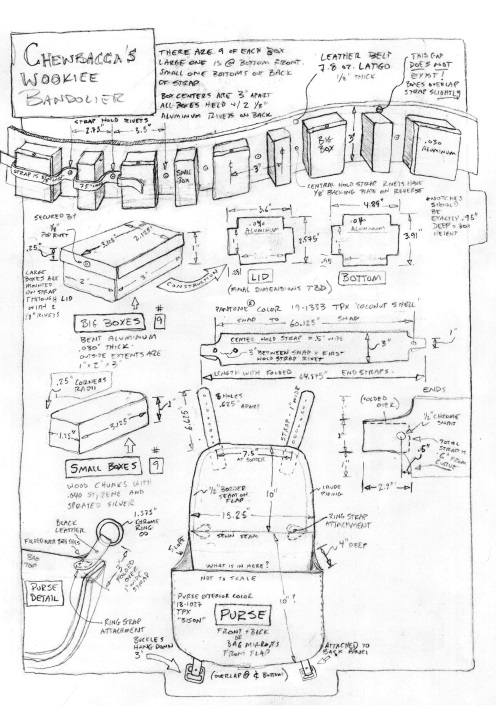 CHEWBACCA'S
WOOKIEE
BANDOLIER
THERE ARE 9 OF EACH BOX
LARGE ONE IS @ BOTTOM FRONT.
SMALL ONE BOTTOMS ON BACK
OF STRAP
BOX CENTERS ARE 3" APART
ALL BOXES HELD W/ 2 1/8"
ALUMINUM RIVETS ON BACK
LEATHER BELT
7-8 OZ. LATGO
1/8" THICK
THIS GAP
DOES NOT
EXIST!
BOXES OVERLAP
STRAP SLIGHTLY
STRAP HOLD RIVETS
SMALL
BOX
3"
BIG
BOX
3"
.030
ALUMINUM
CENTRAL HOLD STRAP RIVETS HAVE
BACKING PLATE ON REVERSE
SECURED BY
1/8"
POP RIVET
.25"
3.125
2.125
2"
3"
LARGE
BOXES ARE
MOUNTED
ON STRAP
THROUGH LID
WITH 2
1/8" RIVETS
CONSTRUCTION
3.6"
.040
ALUMINUM
2.575"
LID
(FINAL DIMENSIONS TBD)
4.89"
ALUMINUM
3.91"
.95
BOTTOM
NOTCHES
SHOULD
BE
EXACTLY .95"
DEEP = BOX
HEIGHT
BIG BOXES # 9
BENT ALUMINUM
.030" THICK.
OUTSIDE EXTENTS ARE
1" x 2" x 3"
PANTONE® COLOR 19-1333 TPX "COCONUT SHELL"
SNAP TO 60.125" SNAP
CENTER HOLD STRAP = .5" WIDE
3" BETWEEN SNAP & FIRST
HOLD STRAP RIVET
3"
1"
LENGTH WITH FOLDED 64.875" END STRAPS.
.25" CORNERS
RADII
3.125
1.125"
SMALL BOXES # 9
WOOD CHUNKS WITH
.040 STYRENE AND
SPRAYED SILVER
8 HOLES
.625" APART
6.625"
STRAP 1" WIDE
7.5"
1/2" BORDER
SEAM ON
FLAP
10"
15.25"
SEWN SEAM
RING STRAP
ATTACHMENT
4" DEEP
WHAT IS IN HERE?
NOT TO SCALE
10"?
PURSE EXTERIOR COLOR
18-1027
TPX
"BISON"
PURSE
FRONT + BACK
OF
BAG MIRRORS
FRONT FLAP
ATTACHED TO
BACK PANEL
(OVERLAP @ ¢ BOTTOM)
ENDS
(FOLDED
OVER)
1/2" CHROME
SNAP
1"
.5"
TOTAL
STRAP IS
FROM
2.9"
1.375"
CHROME
RING
OD
BLACK
LEATHER
BAG
TOP
3"
FOLDED
ONE
1" WIDE
STRAP
PURSE
DETAIL
RING STRAP
ATTACHMENT
BUCKLES
HANG DOWN
3"